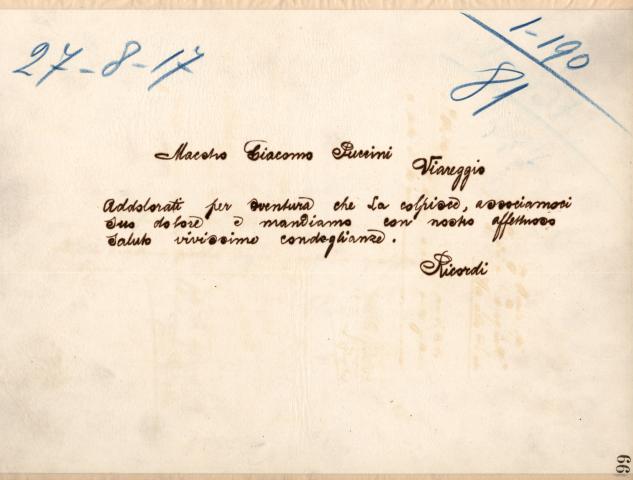 27-8-17
1-190
81
Maestro Giacomo Puccini
Viareggio
Addolorati per sventura che La colpisce, associamoci
suo dolore e mandiamo con nostro affettuoso
saluto vivissime condoglianze.
Ricordi
66